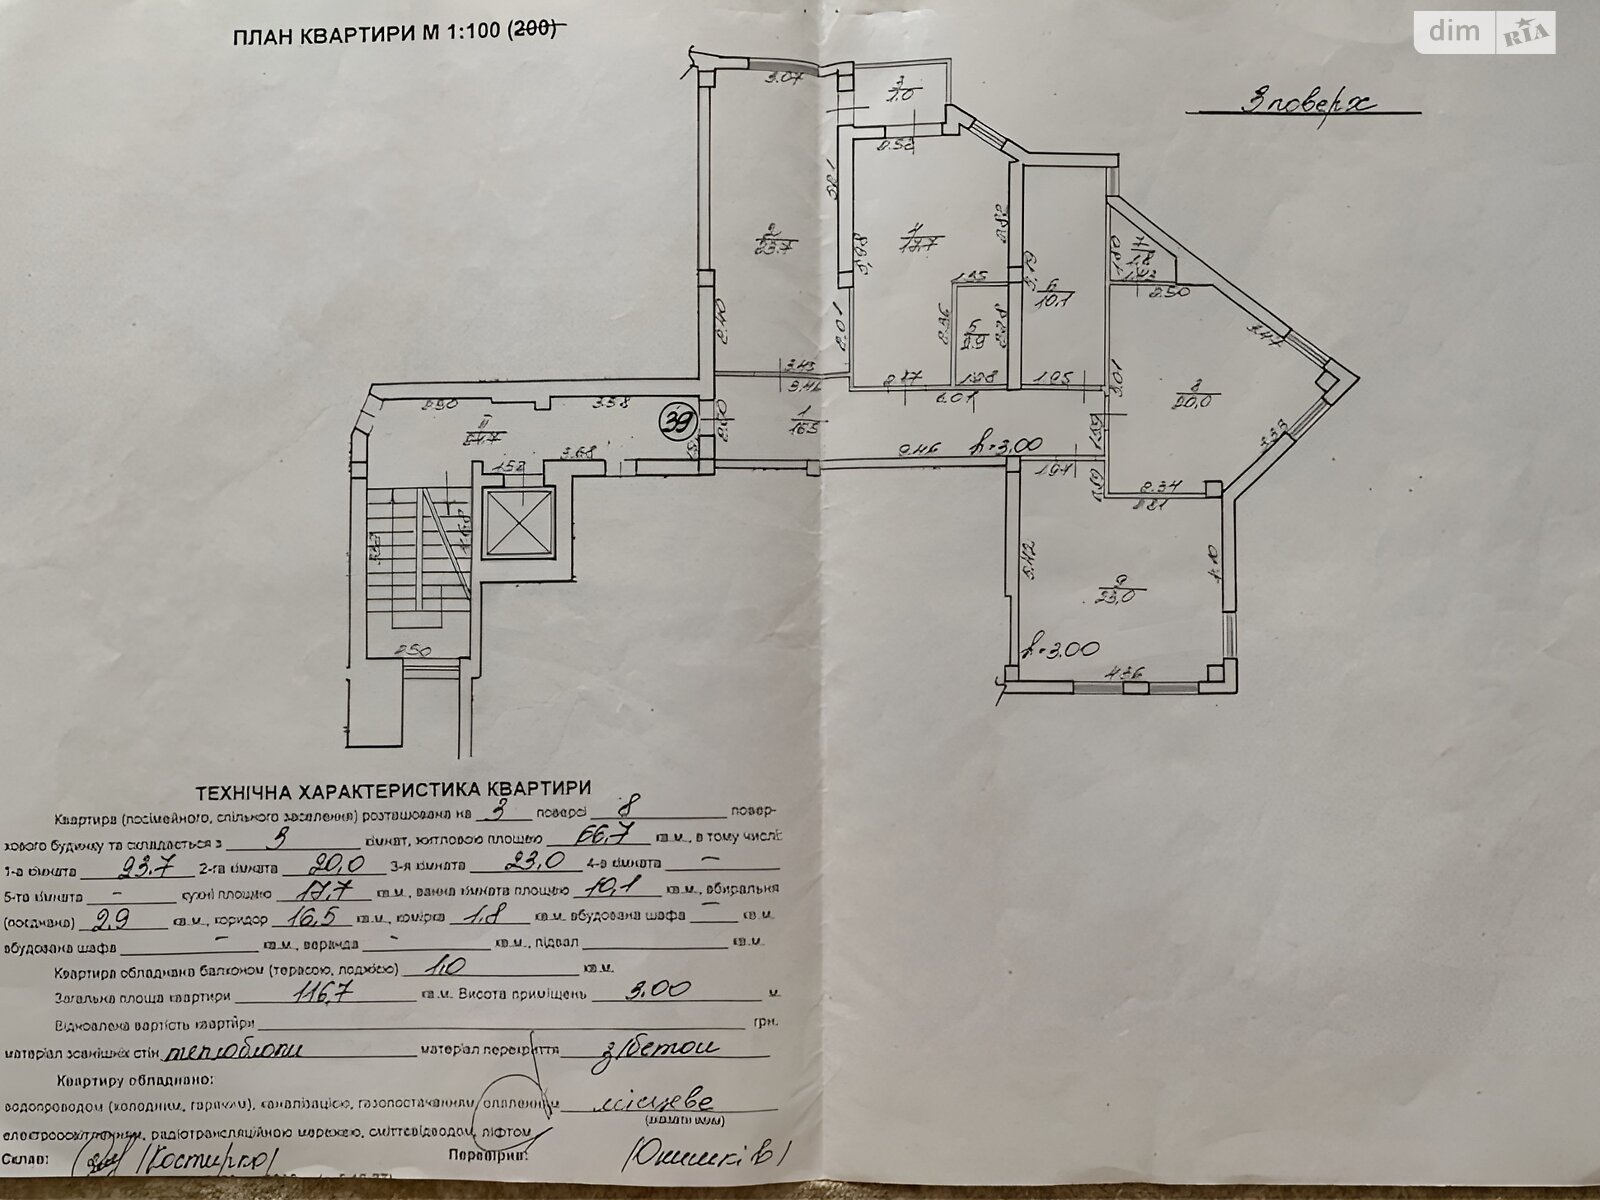 ПЛАН КВАРТИРИ М 1:100 (200)
dim RIA
3 поверх
3.07
3
1.0
2.52
5.21
2
23.7
4
17.7
5.98
2.82
1.80
7
1.8
1.43
2.50
1.25
5.19
6
10.1
2.40
2.01
2.36
5
2.9
2.28
3.47
3.45
3.46
2.17
1.28
1.95
6.01
5.01
8
20.0
2.90
3.58
39
2.00
1
16.5
II
24.7
3.68
1.52
9.46
h=3.00
1.59
3.33
1.94
1.59
2.34
2.21
5.42
4.10
9
23,0
2.50
h=3.00
4.36
ТЕХНІЧНА ХАРАКТЕРИСТИКА КВАРТИРИ
Квартира (посімейного, спільного заселення) розташована на 3 поверсі 8 повер-
хового будинку та складається з 3 кімнат, житловою площею 66,7 кв.м., в тому числі:
1-а кімната 23.7 2-га кімната 20,0 3-я кімната 23,0 4-а кімната -
5-та кімната - кухні площею 17,7 кв.м., ванна кімната площею 10,1 кв.м., вбиральня
(поєднана) 2,9 кв.м., коридор 16,5 кв.м., комірка 1,8 кв.м. вбудована шафа - кв.м.
вбудована шафа - кв.м., веранда - кв.м., підвал кв.м.
Квартира обладнана балконом (терасою, лоджією) 1,0 кв.м.
Загальна площа квартири 116,7 кв.м. Висота приміщень 3.00 м
Відновлена вартість квартири грн.
матеріал зовнішніх стін теплоблоки матеріал перекриття з/бетон
Квартиру обладнано:
водопроводом (холодним, гарячим), каналізацією, газопостачанням, опаленням місцеве
електроосвітленням, радіотрансляційною мережею, сміттєвідводом, ліфтом
Склав: /Костирко/ Перевірив: